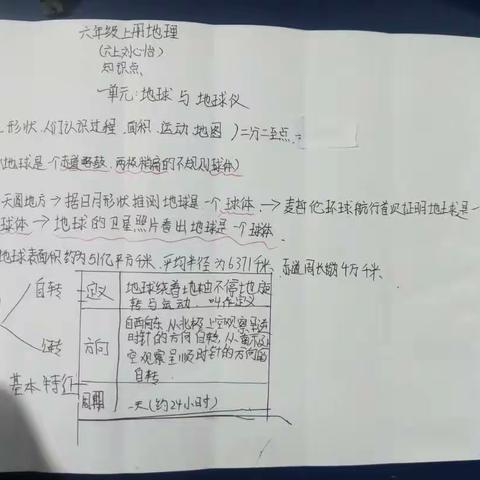 六年级上册地理
(六上刘心怡)
知识点
一单元:地球与地球仪
形状、人们认识过程、面积、运动、地图)二分二至点
地球是一个赤道略鼓、两极稍扁的不规则球体)
天圆地方→据日月形状推测地球是一个球体.→麦哲伦环球航行首次证明地球是一
球体→地球的卫星照片看出地球是一个球体.
地球表面积约为5.1亿平方千米、平均半径为6371千米、赤道周长约4万千米、
自转
定义
地球绕着地轴不停地旋
转与运动、叫作定义
公转
方向
自西向东、从北极上空观察呈逆
时针的方向自转、从南极上
空观察呈顺时针的方向
自转
基本特征
周期
一天(约24小时)